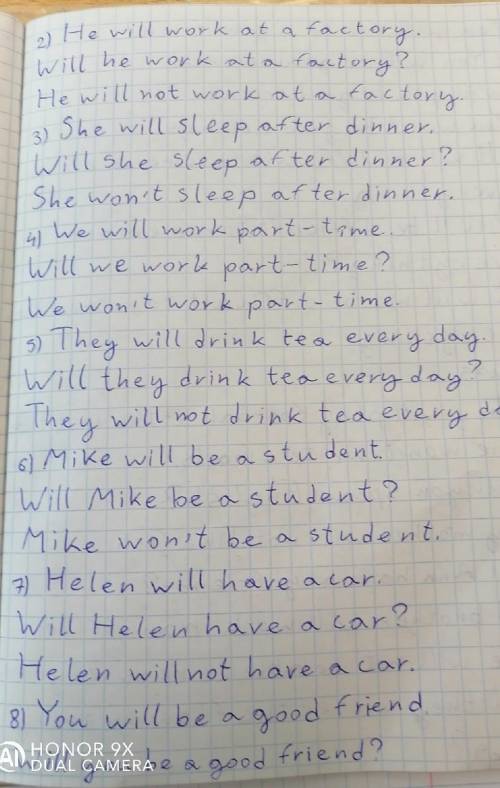 2) He will work at a factory.
Will he work at a factory?
He will not work at a factory.
3) She will sleep after dinner.
Will she sleep after dinner?
She won't sleep after dinner.
4) We will work part-time.
Will we work part-time?
We won't work part-time.
5) They will drink tea every day.
Will they drink tea every day?
They will not drink tea every da
6) Mike will be a student.
Will Mike be a student?
Mike won't be a student.
7) Helen will have a car.
Will Helen have a car?
Helen will not have a car.
8) You will be a good friend
be a good friend?
AI
HONOR 9X
DUAL CAMERA